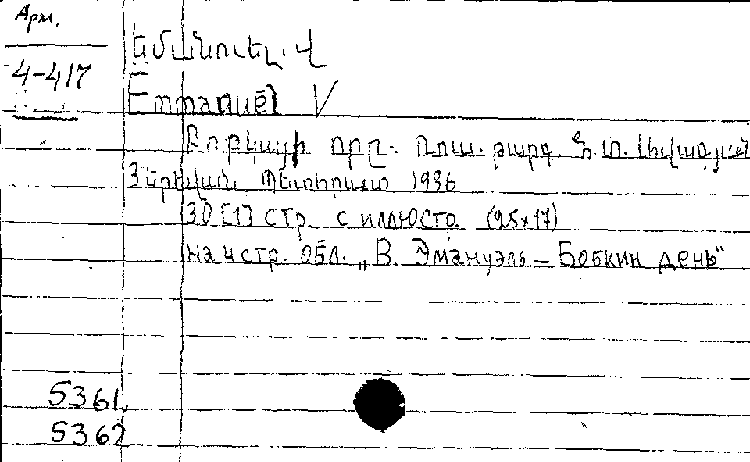 Арм.
4-417
Էմմանուել. Վ
Emmanuel V
Բոբկայի օրը. Ռուս. թարգ.
Յերևան. Պետհրատ 1936
30 [1] стр. с иллюстр. (25x17)
на 4 стр. обл. „В. Эмануэль – Бобкин день"
5361.
5362